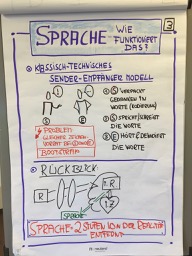 3
SPRACHE WIE
FUNKTIONIERT
DAS?
KLASSISCH-TECHNISCHES
SENDER-EMPFÄNGER MODELL
S E
1 S VERPACKT
GEDANKEN IN
WORTE (KODIERUNG)
2 S SPRICHT/SCHREIBT
DIE WORTE
3 E HÖRT & DEKODIERT
DIE WORTE
PROBLEM
GLEICHER ZEICHEN-
VORRAT BEI S UND E
BOOTSTRAP!
RÜCKBLICK
R
I.R
SPRACHE
SPRACHE = 2 STUFEN VON DER REALITÄT
ENTFERNT